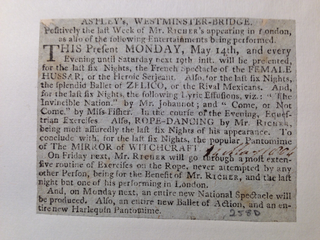 ASTLEY's, WESTMINSTER-BRIDGE.
Positively the last Week of Mr. RICHER's appearing in London,
as also of the following Entertainments being performed.
THIS Present MONDAY, May 14th, and every
Evening until Saturday next 19th inst. will be presented,
for the last six Nights, the French Spectacle of the FEMALE
HUSSAR, or the Heroic Serjeant. Also, for the last six Nights,
the splendid Ballet of ZELICO, or the Rival Mexicans. And,
for the last six Nights, the following Lyric Effusions, viz.: "The
Invincible Nation," by Mr. Johannot; and "Come, or Not
Come," by Miss Fisher. In the course of the Evening, Eques-
trian Exercises. Also, ROPE-DANCING by Mr. RICHER,
being most assuredly the last six Nights of his appearance. To
conclude with, for the last six Nights, the popular Pantomime
of The MIRROR of WITCHCRAFT.
On Friday next, Mr. RICHER will go through a most exten-
sive routine of Exercises on the Rope, never attempted by any
other Person, being for the Benefit of Mr. RICHER, and the last
night but one of his performing in London.
And, on Monday next, an entire new National Spectacle will
be produced. Also, an entire new Ballet of Action, and an en-
tire new Harlequin Pantomime.